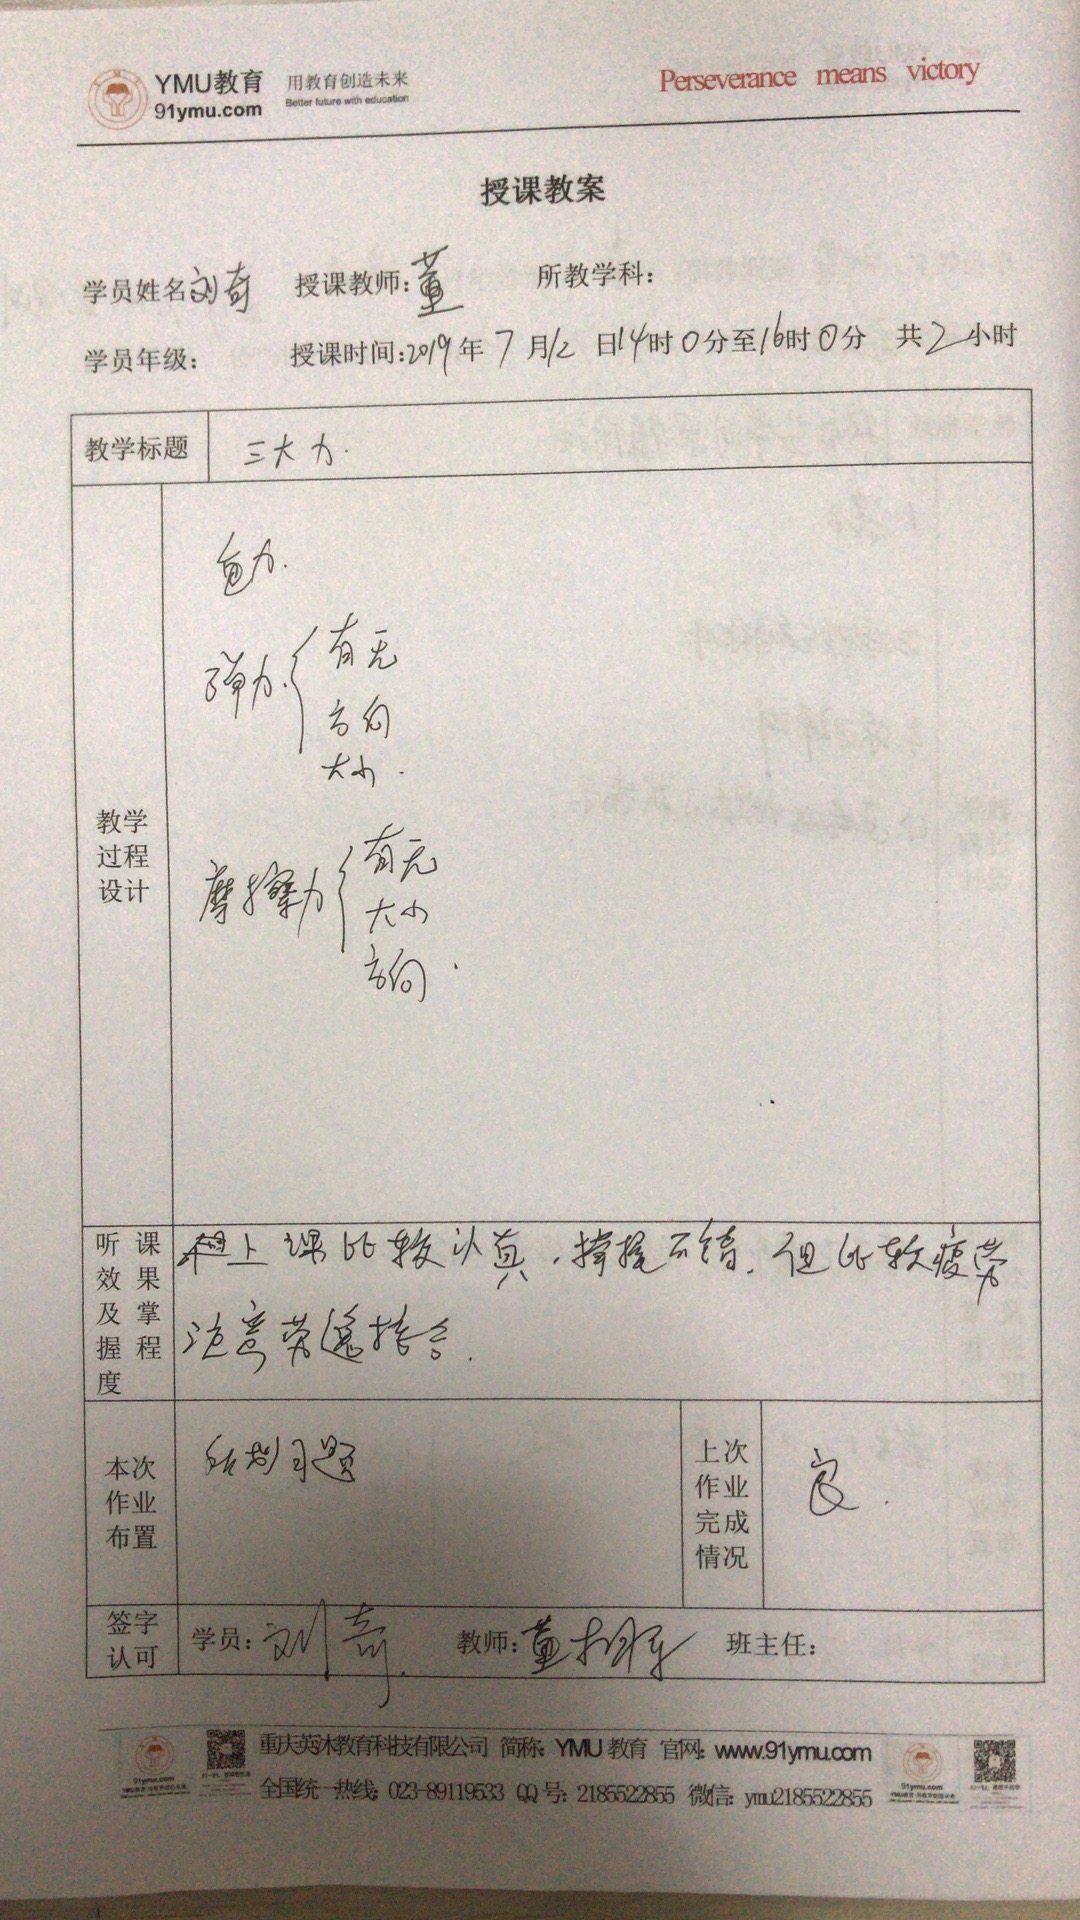 YMU教育 用教育创造未来
91ymu.com Better future with education
Perseverance means victory
授课教案
学员姓名刘奇 授课教师:董 所教学科:
学员年级: 授课时间:2019年7月12日14时0分至16时0分 共2小时
教学标题 三大力.
教学过程设计
重力.
弹力.
有无
方向
大小.
摩擦力
有无
大小
方向.
听课效果及掌握程度
上课比较认真,掌握不错.但比较疲劳
注意劳逸结合.
本次作业布置
所划习题
上次作业完成情况
良.
签字认可 学员:刘奇 教师:董 班主任:
重庆英沐教育科技有限公司 简称:YMU教育 官网:www.91ymu.com
全国统一热线:023-89119533 QQ号:2185522855 微信:ymu2185522855
91ymu.com
91ymu.com